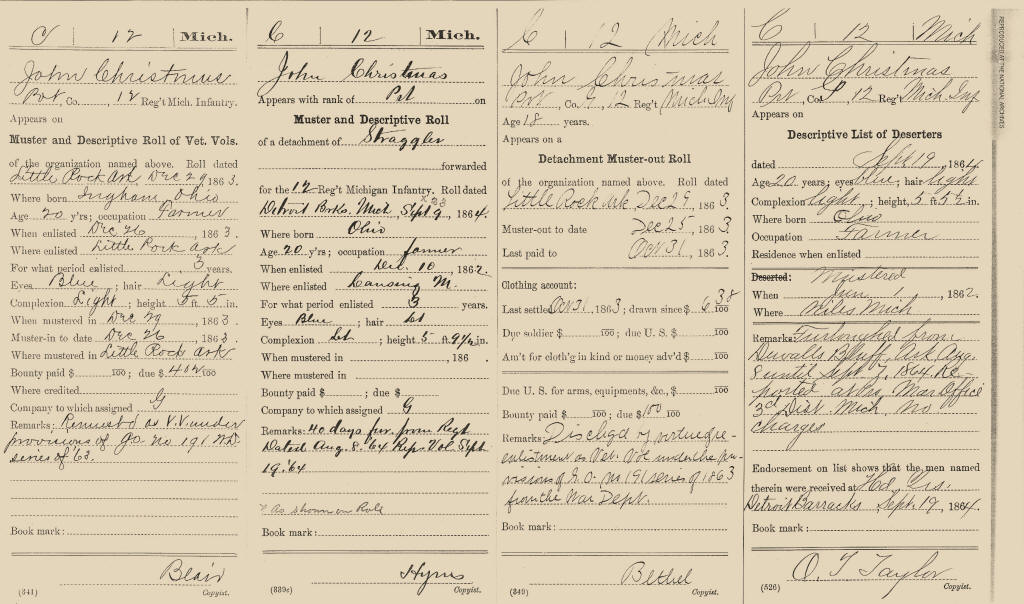 C | 12 | Mich.
John Christmas
Pvt, Co. , 12 Reg't Mich. Infantry.
Appears on
Muster and Descriptive Roll of Vet. Vols.
of the organization named above. Roll dated
Little Rock Ark, Dec 29, 1863.
Where born Ingham, Ohio
Age 20 y'rs; occupation Farmer
When enlisted Dec 26, 1863.
Where enlisted Little Rock Ark
For what period enlisted 3 years.
Eyes Blue; hair Light
Complexion Light; height 5 ft. 5 in.
When mustered in Dec 29, 1863.
Muster-in to date Dec 26, 1863.
Where mustered in Little Rock Ark
Bounty paid $ 100; due $ 400 100
Where credited
Company to which assigned G
Remarks: Remust'd as V.V. under
provisions of G.O. no 191 W.D.
series of '63.
Book mark:
Blair
(341) Copyist.
C | 12 | Mich.
John Christmas
Appears with rank of Pvt on
Muster and Descriptive Roll
of a detachment of Straggler
forwarded
for the 12 Reg't Michigan Infantry. Roll dated
Detroit Brks. Mich, Sept 9, 1864.
Where born Ohio
Age 20 y'rs; occupation farmer
When enlisted Dec. 10, 1862.
Where enlisted Lansing M.
For what period enlisted 3 years.
Eyes Blue; hair Let
Complexion Let; height 5 ft. 9½ in.
When mustered in , 186
Where mustered in
Bounty paid $ 100; due $ 100
Company to which assigned G
Remarks: 40 days fur. from Regt
Dated Aug. 8. '64 Reps. Vol Sept
19. 64
? As shown on Roll
Book mark:
Hyms
(339c) Copyist.
C | 12 | Mich
John Christmas
Pvt, Co. G, 12 Reg't Mich. Inf
Age 18 years.
Appears on a
Detachment Muster-out Roll
of the organization named above. Roll dated
Little Rock Ark Dec 29, 1863.
Muster-out to date Dec 25, 1863
Last paid to Oct 31, 1863
Clothing account:
Last settled Oct 31, 1863; drawn since $ 6 38 100
Due soldier $ 100; due U. S. $ 100
Am't for cloth'g in kind or money adv'd $ 100
Due U. S. for arms, equipments, &c., $ 100
Bounty paid $ 100; due $ 100 100
Remarks: Dischgd by virtue of re-
enlistment as Vet. Vol under the pro-
visions of G.O. no 191 series of 1863
from the War Dept.
Book mark:
Bethel
(349) Copyist.
C | 12 | Mich
John Christmas
Pvt, Co. G, 12 Reg't Mich. Inf
Appears on
Descriptive List of Deserters
dated Sept 19, 1864
Age 20 years; eyes blue; hair light
Complexion light; height, 5 ft 5½ in.
Where born Ohio
Occupation Farmer
Residence when enlisted
Deserted: Mustered
When Jan. 1, 1862.
Where Niles Mich
Remarks: Furloughed from
Duvalls Bluff, Ark, Aug.
8 until Sept. 7, 1864. Re-
ported at Pro. Mar Office
3d Dist. Mich. No
charges
Endorsement on list shows that the men named
therein were received at Hd, Qrs.
Detroit Barracks, Sept. 19, 1864.
Book mark:
O. T. Taylor
(526) Copyist.
REPRODUCED AT THE NATIONAL ARCHIVES